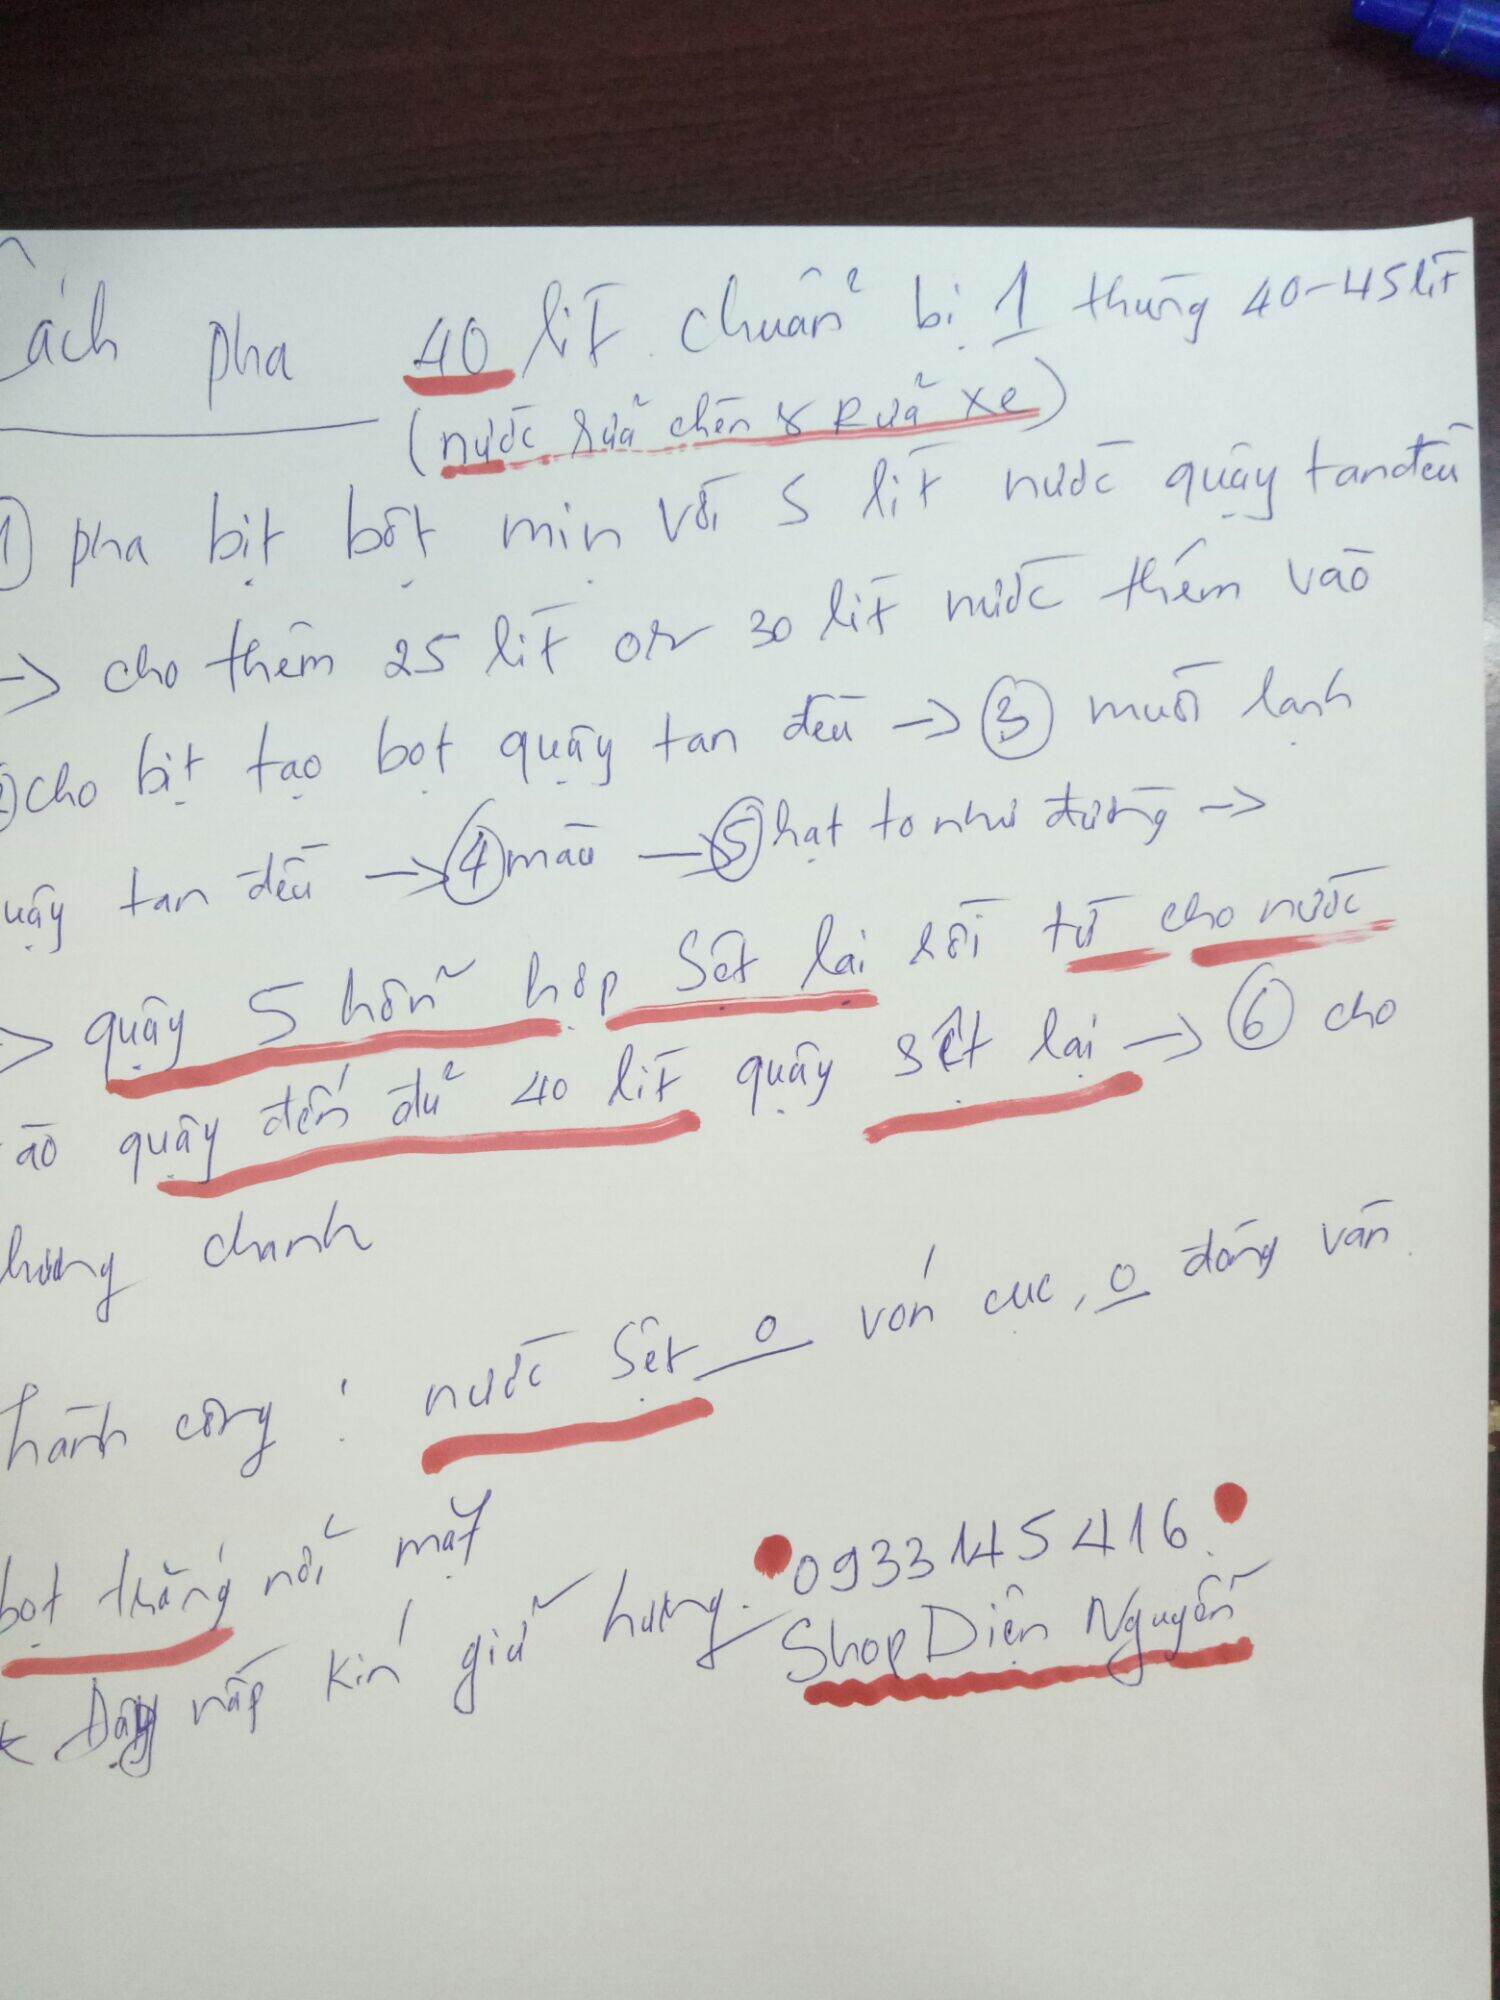 Cách pha 40 lít chuẩn bị 1 thùng 40-45 lít
(nước rửa chén & Rửa xe)
① pha bịt bột mịn với 5 lít nước quậy tan đều
-> cho thêm 25 lít or 30 lít nước thêm vào
② cho bịt tạo bọt quậy tan đều -> ③ muối lạnh
quậy tan đều -> ④ màu -> ⑤ hạt to như đường ->
-> quậy 5 hỗn hợp Sệt lại rồi từ cho nước
vào quậy đến đủ 40 lít quậy sệt lại -> ⑥ cho
hương chanh
Thành công : nước Sệt 0 vón cục, 0 đóng ván
bọt trắng nổi mặt
Đậy nắp kín giữ hương. 0933145416.
Shop Diện Nguyễn